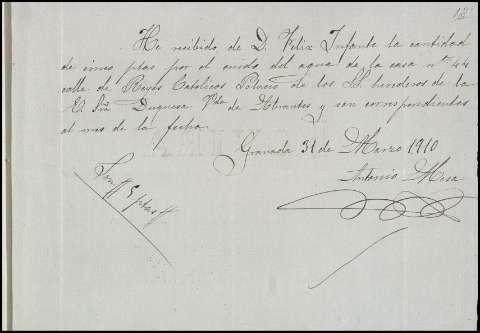 He recibido de D. Felix Infante la cantidad
de cinco ptas por el cuido del agua de la casa nº 44
calle de Reyes Catolicos Palacio de los SS. herederos de la
E. Sra Duquesa Vda de Abrantes y son correspondientes
al mes de la fecha.
Granada 31 de Marzo 1910
Antonio Mesa
Son 5 ptas